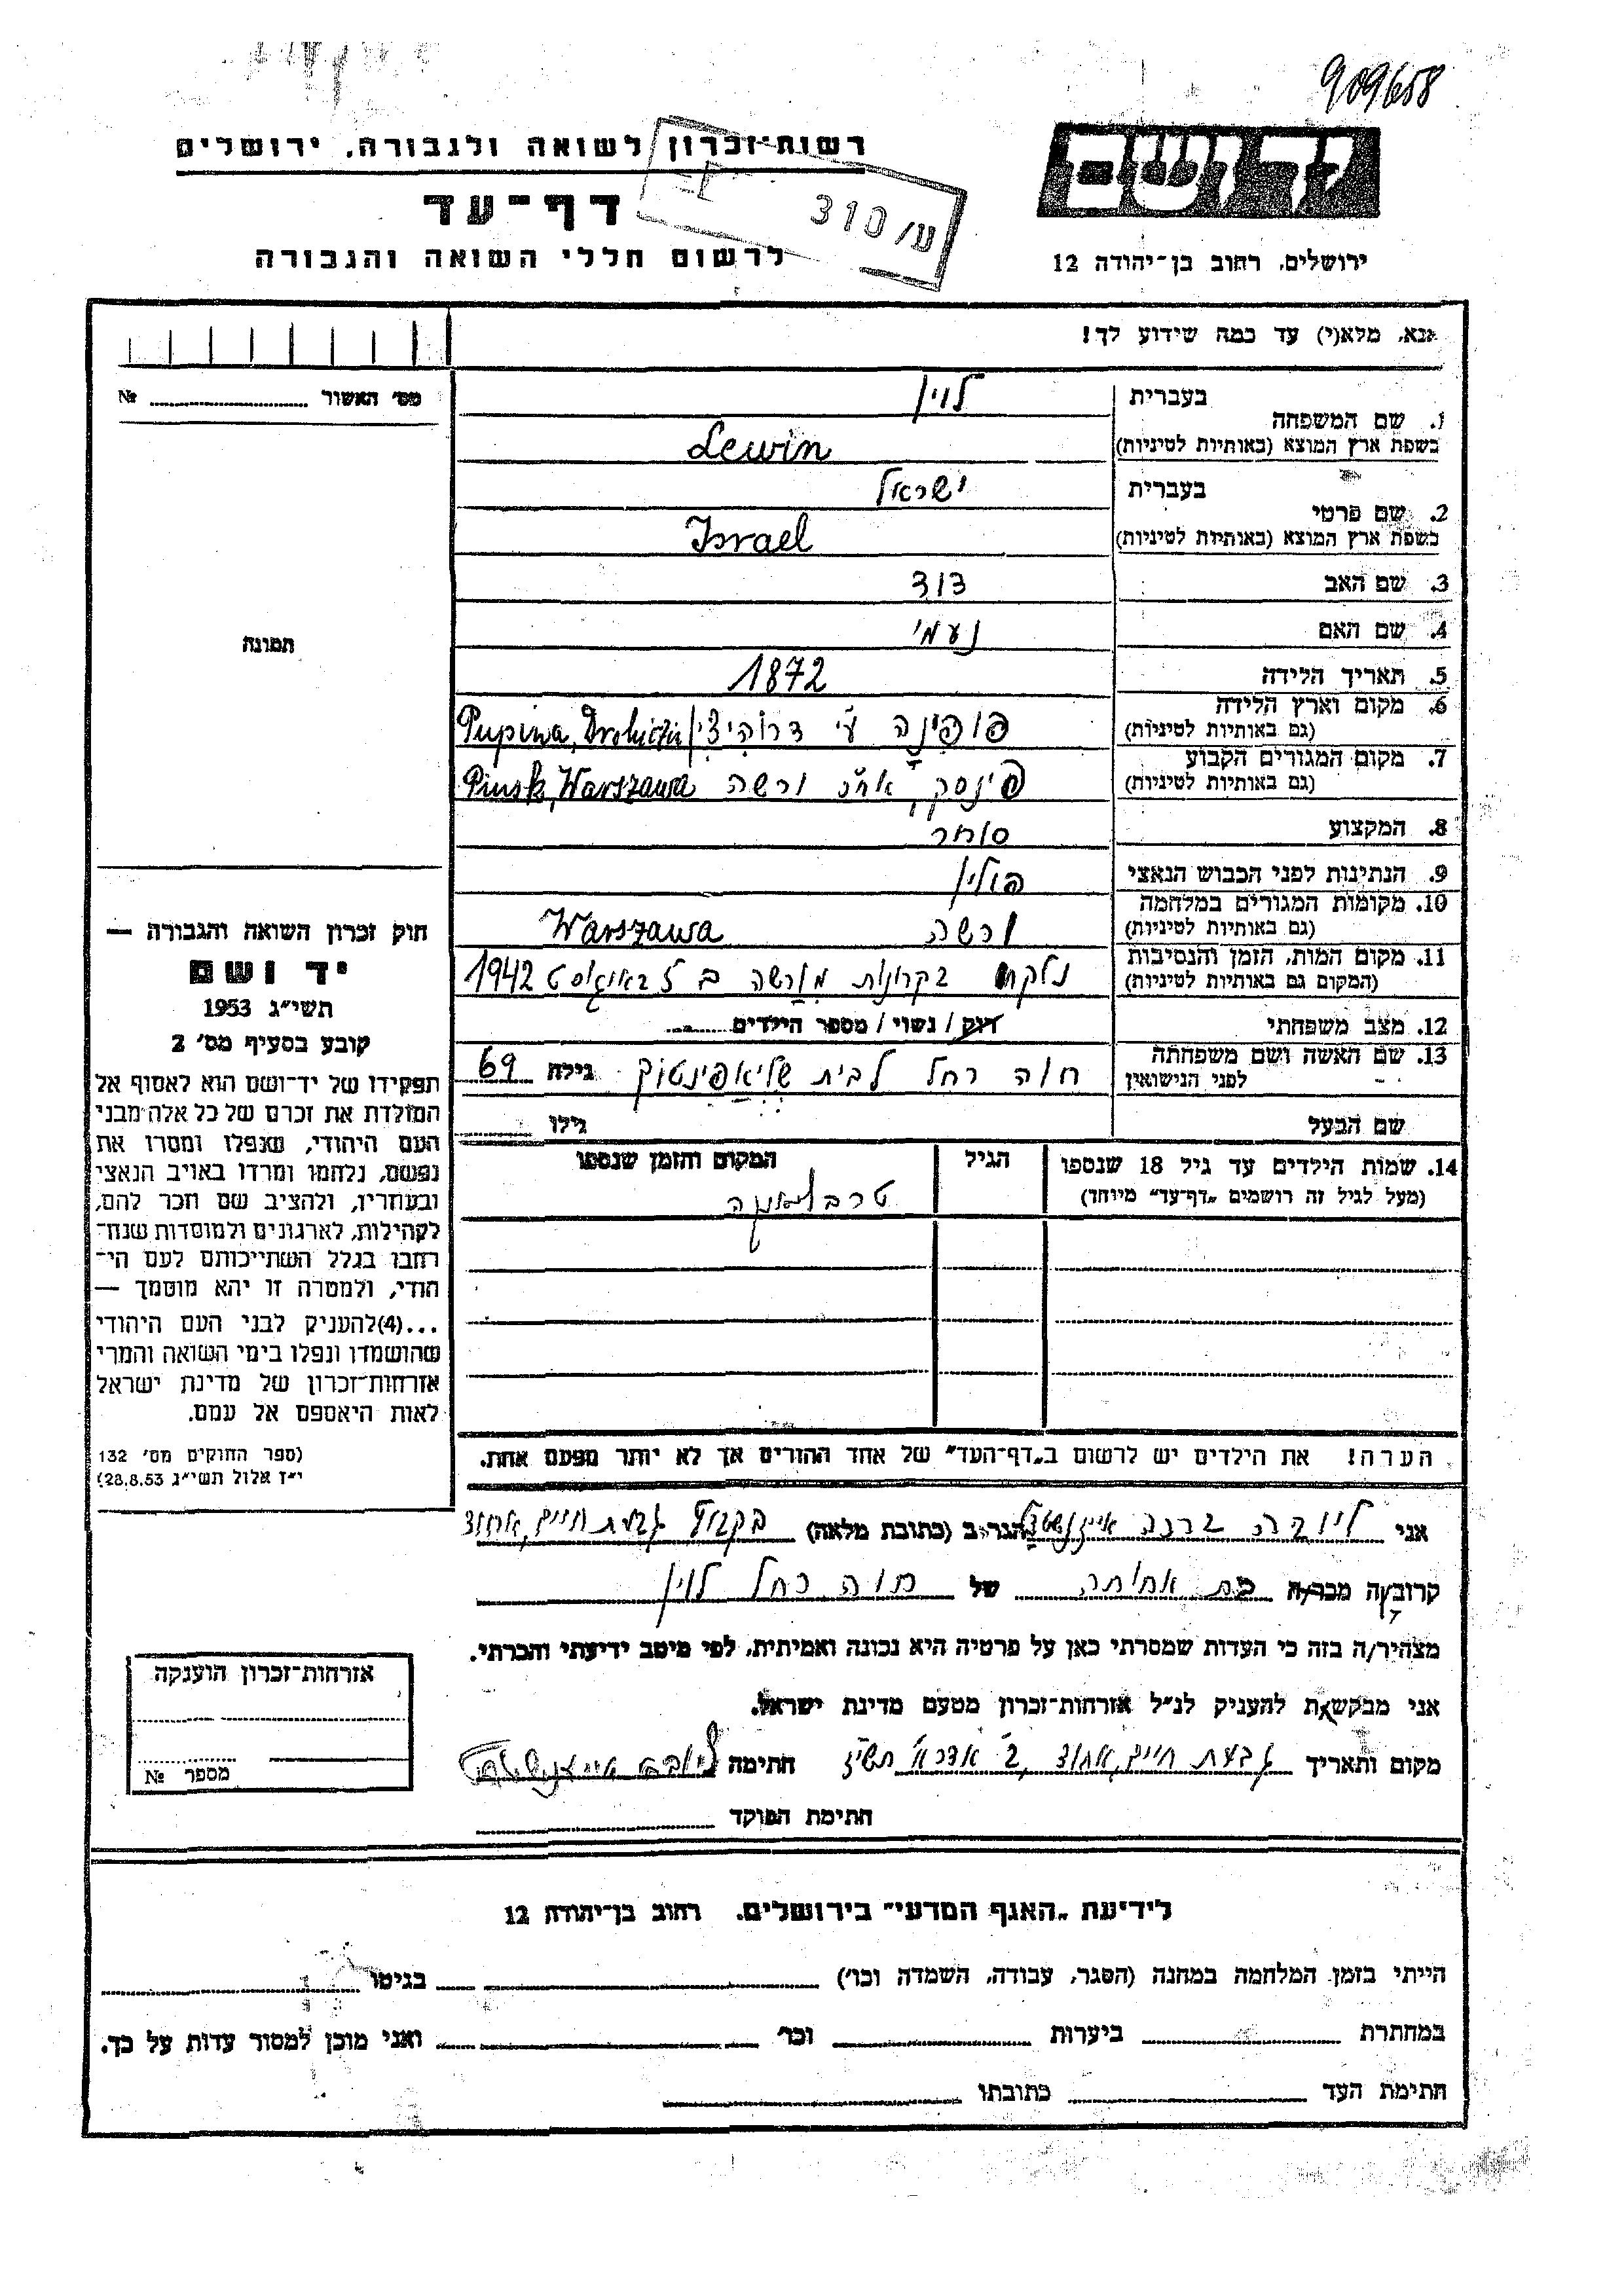 909658
רשות־זכרון לשואה ולגבורה, ירושלים
יד ושם
דף־עד
310/ע
לרשום חללי השואה והגבורה
ירושלים, רחוב בן־יהודה 12
אנא, מלא(י) עד כמה שידוע לך!
מס׳ האשור № 
בעברית לוין
1. שם המשפחה
בשפת ארץ המוצא (באותיות לטיניות) Lewin
בעברית ישראל
2. שם פרטי
בשפת ארץ המוצא (באותיות לטיניות) Israel
3. שם האב דוד
4. שם האם נעמי
5. תאריך הלידה 1872
6. מקום וארץ הלידה
(גם באותיות לטיניות) פופינה ע״י דרוהיצ׳ין Pupina, Drohiczin
7. מקום המגורים הקבוע
(גם באותיות לטיניות) פינסק, אח״כ ורשה Pinsk, Warszawa
8. המקצוע סוחר
9. הנתינות לפני הכבוש הנאצי פולין
10. מקומות המגורים במלחמה
(גם באותיות לטיניות) ורשה Warszawa
11. מקום המות, הזמן והנסיבות
(המקום גם באותיות לטיניות) נלקח בקרונות מורשה ב 7 באוגוסט 1942
12. מצב משפחתי רוק / נשוי / מספר הילדים
13. שם האשה ושם משפחתה
לפני הנישואין חוה רחל לבית שליאפינטוך גילה 69
שם הבעל גילו
14. שמות הילדים עד גיל 18 שנספו הגיל המקום והזמן שנספו
(מעל לגיל זה רושמים „דף־עד״ מיוחד)
טרבלינקה
הערה! את הילדים יש לרשום ב„דף־העד״ של אחד ההורים אך לא יותר מפעם אחת.
תמונה
חוק זכרון השואה והגבורה —
יד ושם
תשי״ג 1953
קובע בסעיף מס׳ 2
תפקידו של יד־ושם הוא לאסוף אל
המולדת את זכרם של כל אלה מבני
העם היהודי, שנפלו ומסרו את
נפשם, נלחמו ומרדו באויב הנאצי
ובעוזריו, ולהציב שם וזכר להם,
לקהילות, לארגונים ולמוסדות שנח־
רבו בגלל השתייכותם לעם הי־
הודי, ולמטרה זו יהא מוסמך —
...(4)להעניק לבני העם היהודי
שהושמדו ונפלו בימי השואה והמרי
אזרחות־זכרון של מדינת ישראל
לאות היאספם אל עמם.
(ספר החוקים מס׳ 132
י״ז אלול תשי״ג 28.8.53)
אני ליובה ברכה אייזנשטדט הגר/ב (כתובת מלאה) בקבוץ גבעת חיים, אחוד
קרוב/ה מכר/ה בת אחותה של חוה רחל לוין
מצהיר/ה בזה כי העדות שמסרתי כאן על פרטיה היא נכונה ואמיתית, לפי מיטב ידיעתי והכרתי.
אני מבקש/ת להעניק לנ״ל אזרחות־זכרון מטעם מדינת ישראל.
מקום ותאריך גבעת חיים, אחוד, ב׳ אדר א׳ תשי״ז חתימה ליובה אייזנשטדט
חתימת הפוקד
אזרחות־זכרון הוענקה
מספר №
לידיעת „האגף המדעי״ בירושלים, רחוב בן־יהודה 12
הייתי בזמן המלחמה במחנה (הסגר, עבודה, השמדה וכו׳) בגיטו
במחתרת ביערות וכו׳ ואני מוכן למסור עדות על כך.
חתימת העד כתובתו